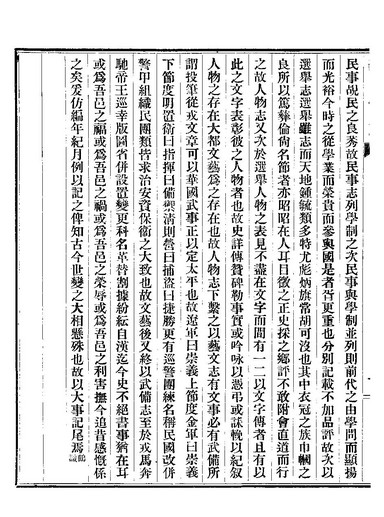 民事覘民之良莠故民事志列學制之次民事與學制並列則前代之由學問而顯揚
而光裕今時之從學業而榮貴而參與國是者皆更重也分別記載不加品評故次以
選舉志選舉雖志而天地鍾毓類多特尤彪炳旂常胡可沒也其中衣冠之族巾幗之
良所以篤彝倫尚名節者亦昭昭在人耳目徵之正史採之鄉評不敢附會直道而行
之故人物志又次於選舉人物之表見不盡在文字而間有一二以文字傳者且有以
此之文字表彰彼之人物者也故史詳傳贊碑勒事實或吟咏以憑弔或誄輓以紀叙
人物之存在大都文藝爲之存在也故人物志下繫之以藝文志有文事必有武備所
謂投筆從戎文章可以華國武事正以定太平也故遼軍曰崇義上節度金軍曰崇義
下節度明置衛曰指揮曰備禦清則營曰捕盜曰捷勝更有巡警團練名稱民國改併
警甲組織民團類皆求治安資保衛之大致也故文藝後又終以武備志至於戎馬奔
馳帝王巡幸版圖省併設置變更科名革替割據紛紜自漢迄今史不絕書事猶在耳
或爲吾邑之福或爲吾邑之禍或爲吾邑之榮辱或爲吾邑之利害撫今追昔感慨係
之矣爰仿編年紀月例以記之俾知古今世變之大相懸殊也故以大事記尾焉